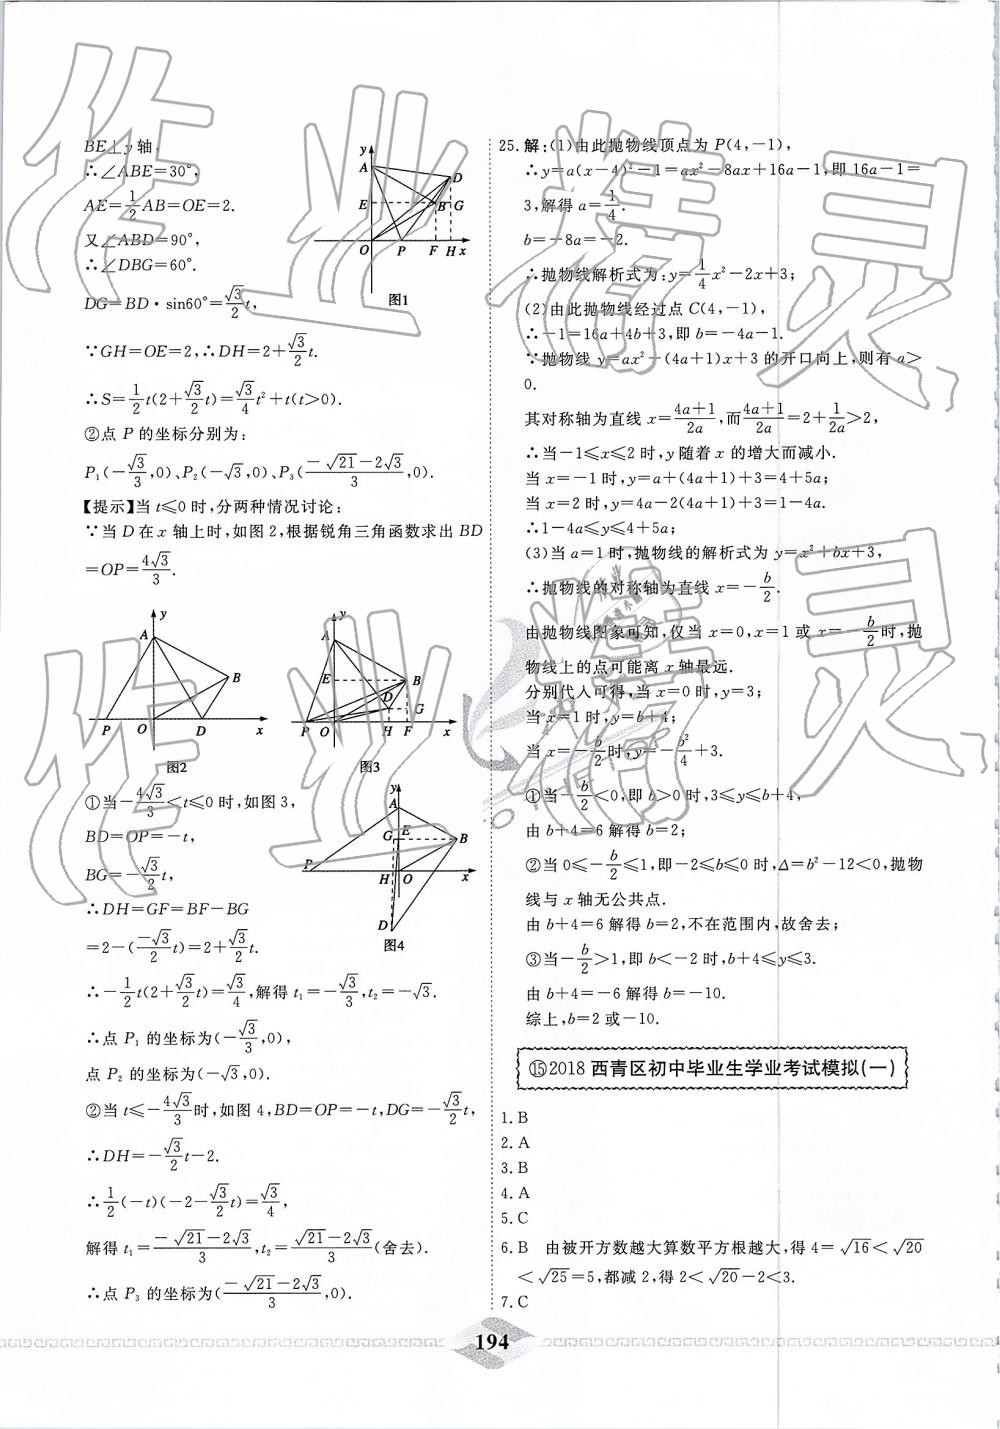 BE⊥y轴.
∴∠ABE=30°,
AE=1/2AB=OE=2.
又∠ABD=90°,
∴∠DBG=60°.
DG=BD·sin60°=√3/2 t,
∵GH=OE=2,∴DH=2+√3/2 t.
∴S=1/2 t(2+√3/2 t)=√3/4 t²+t(t>0).
②点 P 的坐标分别为:
P₁(-√3/3,0)、P₂(-√3,0)、P₃((-√21-2√3)/3,0).
【提示】当 t≤0 时,分两种情况讨论:
∵当 D 在 x 轴上时,如图 2,根据锐角三角函数求出 BD
=OP=4√3/3.
y
A
D
E
B
G
O
P
F
H
x
图1
y
A
B
P
O
D
x
图2
y
A
E
B
D
G
P
O
H
F
x
图3
①当-4√3/3<t≤0 时,如图 3,
BD=OP=-t,
BG=-√3/2 t,
∴DH=GF=BF-BG
=2-(-√3/2 t)=2+√3/2 t.
y
A
G
E
B
P
H
O
x
D
图4
∴-1/2 t(2+√3/2 t)=√3/4,解得 t₁=-√3/3,t₂=-√3.
∴点 P₁ 的坐标为(-√3/3,0),
点 P₂ 的坐标为(-√3,0).
②当 t≤-4√3/3时,如图 4,BD=OP=-t,DG=-√3/2 t,
∴DH=-√3/2 t-2.
∴1/2(-t)(-2-√3/2 t)=√3/4,
解得 t₁=(-√21-2√3)/3,t₂=(√21-2√3)/3(舍去).
∴点 P₃ 的坐标为((-√21-2√3)/3,0).
25.解:(1)由此抛物线顶点为 P(4,-1),
∴y=a(x-4)²-1=ax²-8ax+16a-1,即 16a-1=
3,解得 a=1/4.
b=-8a=-2.
∴抛物线解析式为:y=1/4 x²-2x+3;
(2)由此抛物线经过点 C(4,-1),
∴-1=16a+4b+3,即 b=-4a-1.
∵抛物线 y=ax²-(4a+1)x+3 的开口向上,则有 a>
0.
其对称轴为直线 x=(4a+1)/2a,而(4a+1)/2a=2+1/2a>2,
∴当-1≤x≤2 时,y 随着 x 的增大而减小.
当 x=-1 时,y=a+(4a+1)+3=4+5a;
当 x=2 时,y=4a-2(4a+1)+3=1-4a.
∴1-4a≤y≤4+5a;
(3)当 a=1 时,抛物线的解析式为 y=x²+bx+3,
∴抛物线的对称轴为直线 x=-b/2.
由抛物线图象可知,仅当 x=0,x=1 或 x=-b/2时,抛
物线上的点可能离 x 轴最远.
分别代入可得,当 x=0 时,y=3;
当 x=1 时,y=b+4;
当 x=-b/2时,y=-b²/4+3.
①当-b/2<0,即 b>0 时,3≤y≤b+4,
由 b+4=6 解得 b=2;
②当 0≤-b/2≤1,即-2≤b≤0 时,Δ=b²-12<0,抛物
线与 x 轴无公共点.
由 b+4=6 解得 b=2,不在范围内,故舍去;
③当-b/2>1,即 b<-2 时,b+4≤y≤3.
由 b+4=-6 解得 b=-10.
综上,b=2 或-10.
⑮2018 西青区初中毕业生学业考试模拟(一)
1.B
2.A
3.B
4.A
5.C
6.B 由被开方数越大算数平方根越大,得 4=√16<√20
<√25=5,都减 2,得 2<√20-2<3.
7.C
194
作业精灵
作业精灵